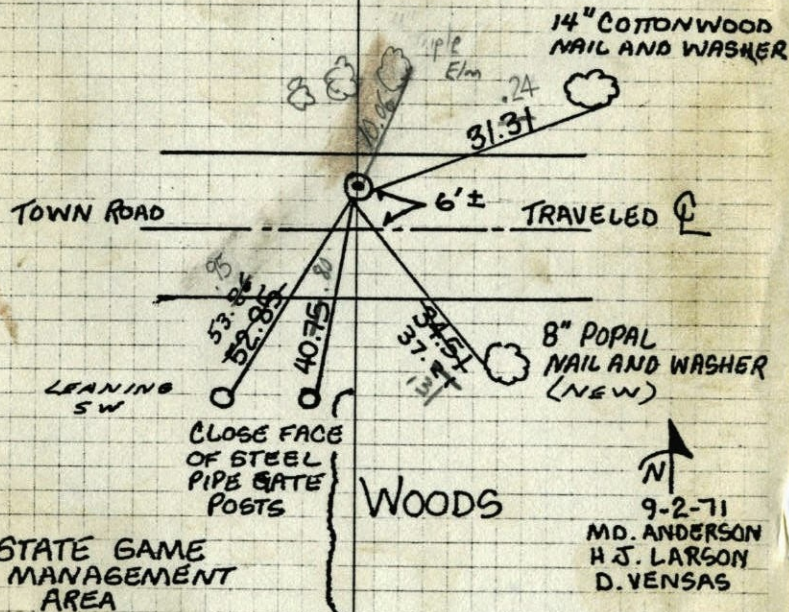 14" COTTONWOOD
NAIL AND WASHER
Elm
10.06
.24
31.31
TOWN ROAD
6'±
TRAVELED ℄
.95
53.86
52.85
.80
40.75
34.51
8" POPAL
NAIL AND WASHER
(NEW)
LEANING
SW
CLOSE FACE
OF STEEL
PIPE GATE
POSTS
WOODS
N
9-2-71
MD. ANDERSON
H J. LARSON
D. VENSAS
STATE GAME
MANAGEMENT
AREA